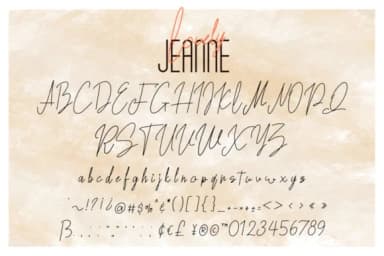 lovely
JEANNE
ABCDEFGHIJKLMNOPQ
RSTUVWXYZ
abcdefghijklmnopqrstuvwxyz
0123456789